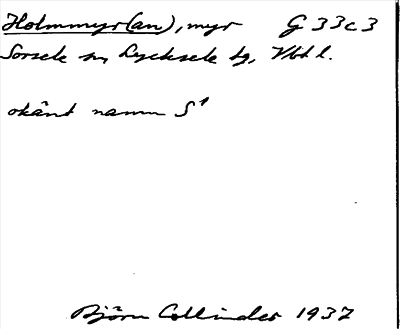 Holmmyr(an), myr G 33c3
Sorsele sn, Lycksele tg, Vbt l.
okänt namn S¹
Björn Collinder 1937